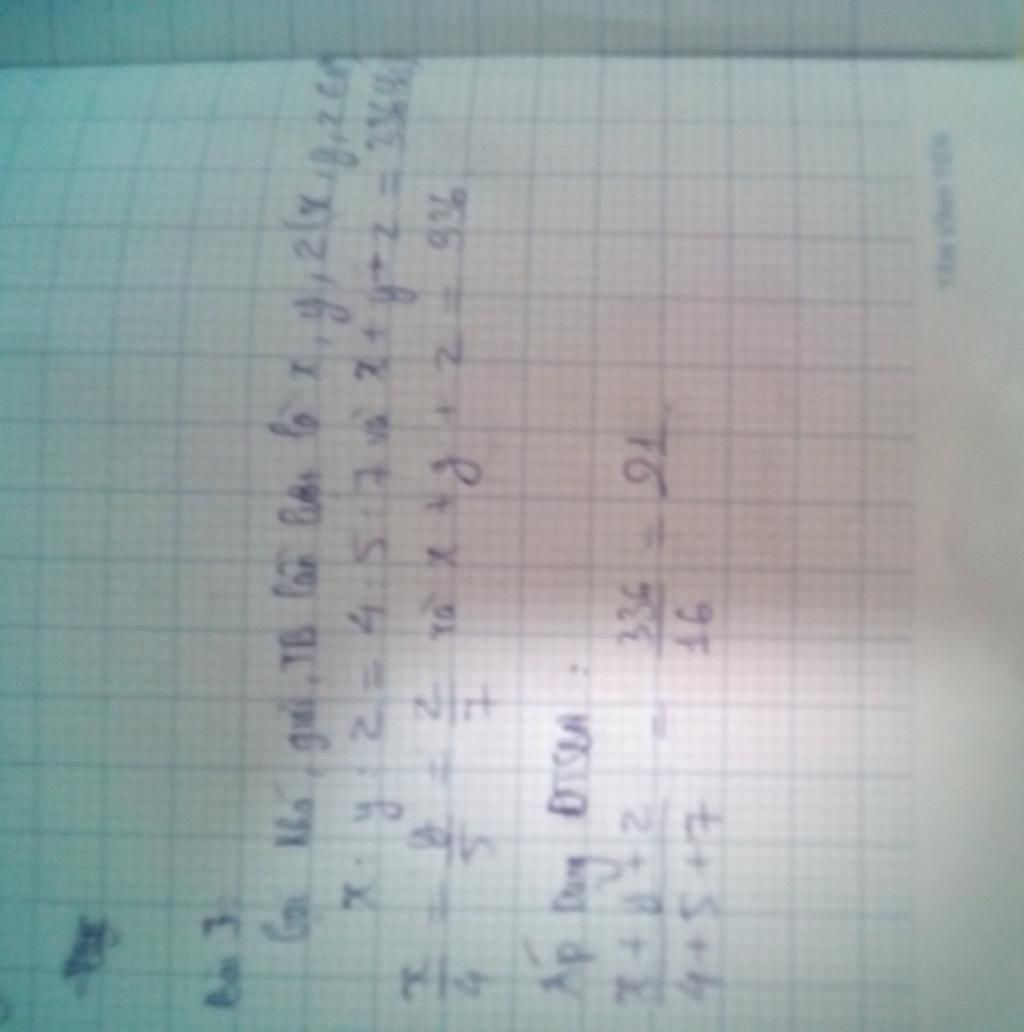 Bài 3
Gọi khá, giỏi, TB lần lượt là x, y, z (x, y, z ∈
x : y : z = 4 : 5 : 7 và x + y + z = 336
x/4 = y/5 = z/7 và x + y + z = 336
Áp dụng DTSBN :
x + y + z / 4 + 5 + 7 = 336/16 = 21